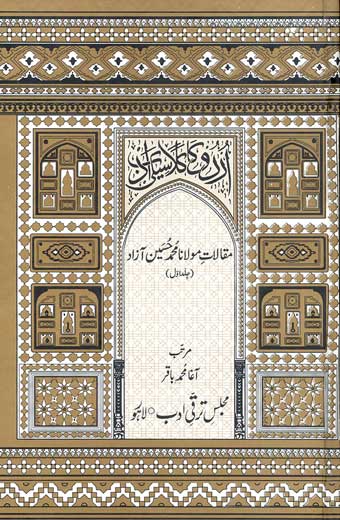 اُردو کا کلاسیکی ادب
مقالاتِ مولانا محمد حسین آزاد
(جلد اول)
مرتب
آغا محمد باقر
مجلس ترقیٔ ادب ○ لاہور